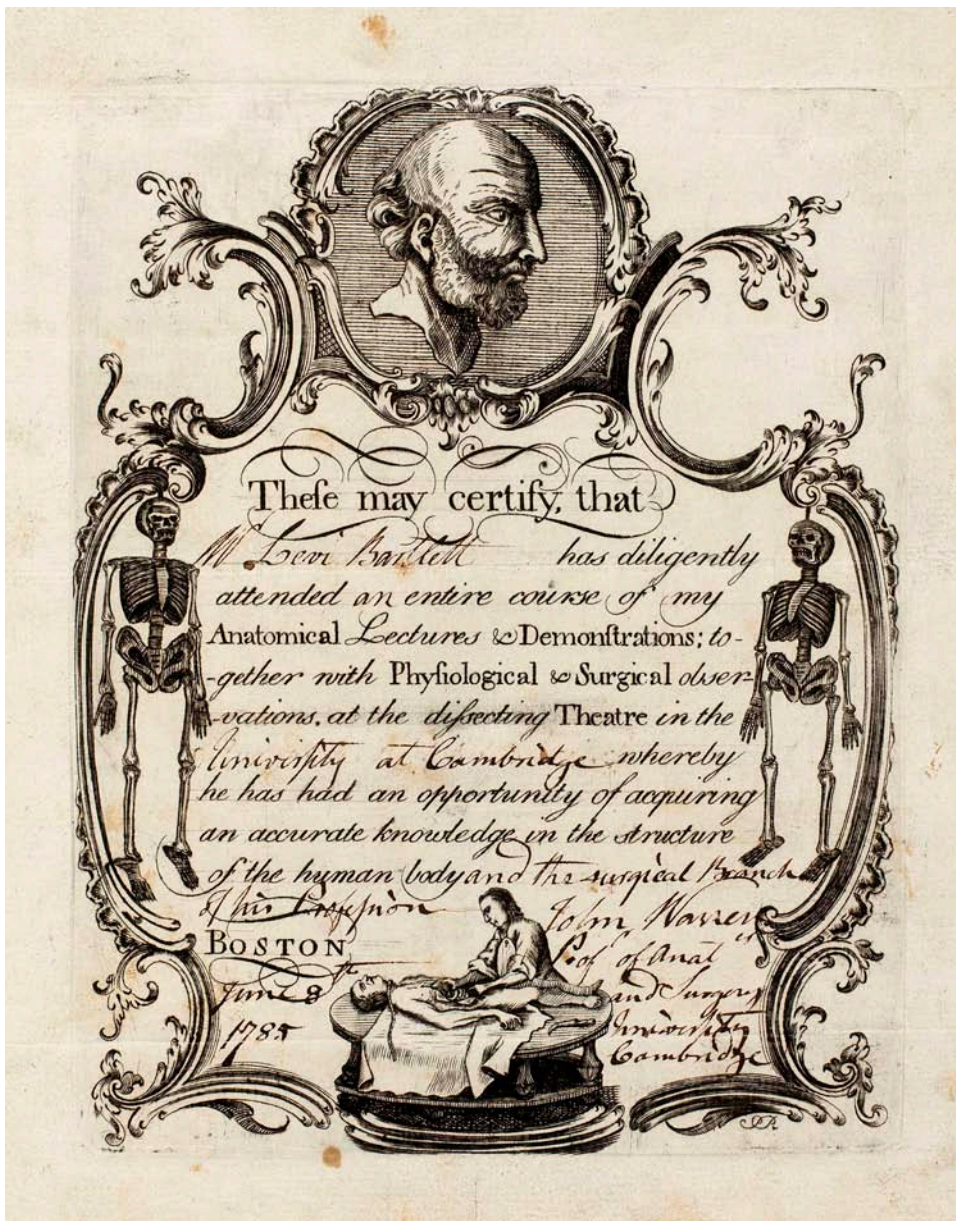 Theſe may certify, that
Mr. Levi Bartlett has diligently
attended an entire course of my
Anatomical Lectures & Demonſtrations; to-
-gether with Phyſiological & Surgical obser-
-vations, at the diſsecting Theatre in the
Univerſity at Cambridge whereby
he has had an opportunity of acquiring
an accurate knowledge in the structure
of the human body and the surgical Branch
of his Profeſsion
John Warren
BOSTON
Prof of Anaty
June 8th
and Surgery
1785
University
Cambridge
PR